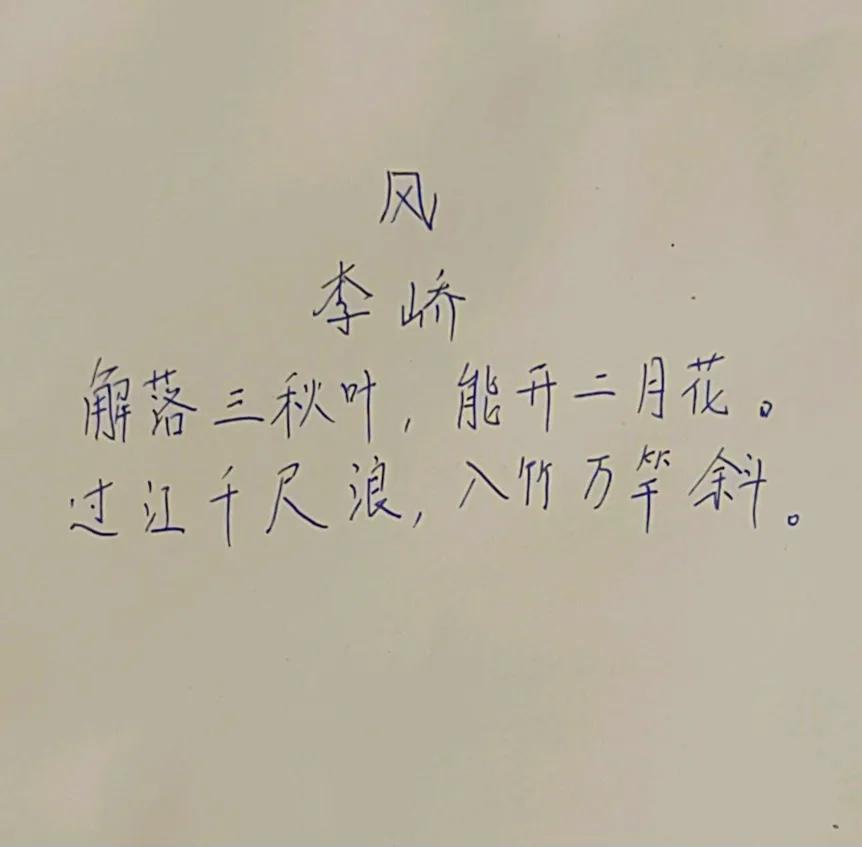 风
李峤
解落三秋叶,能开二月花。
过江千尺浪,入竹万竿斜。